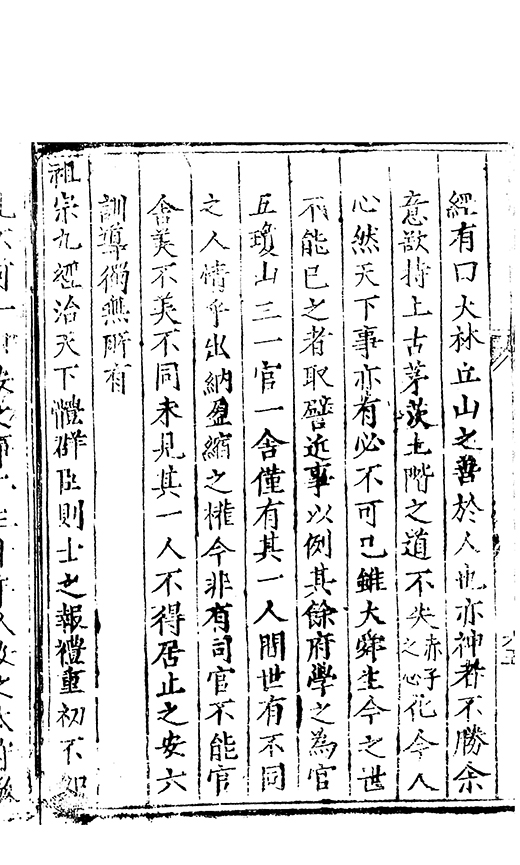 經有曰大林丘山之善於人也亦神者不勝余
意欲持上古茅茨土階之道不失赤子之心化今人
心然天下事亦有必不可已雖大舜生今之世
不能已之者取譬近事以例其餘府學之為官
五瓊山三一官一舍僅有其一人間世有不同
之人情乎出納盈縮之權今非有司官不能官
舍美不美不同未見其一人不得居止之安六
訓導獨無所有
祖宗九經治天下體群臣則士之報禮重初不如